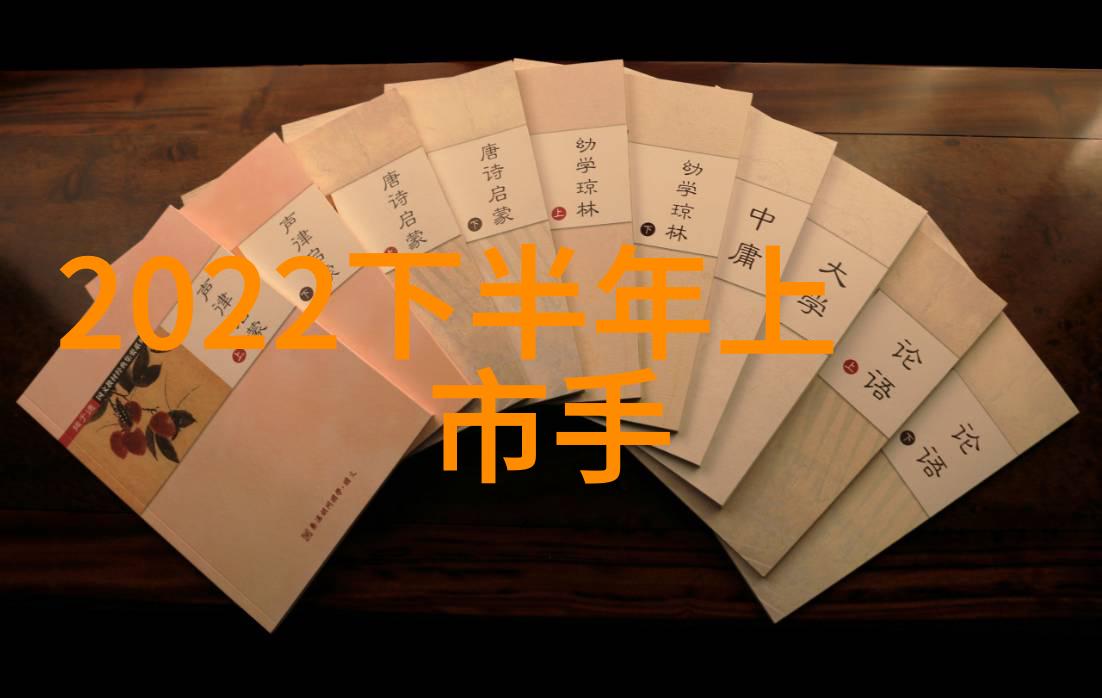 2022下半年上
市手
声律启蒙
上
声律启蒙
下
唐诗启蒙
上
唐诗启蒙
下
幼学琼林
上
幼学琼林
下
中庸
大学
论语
上
论语
下